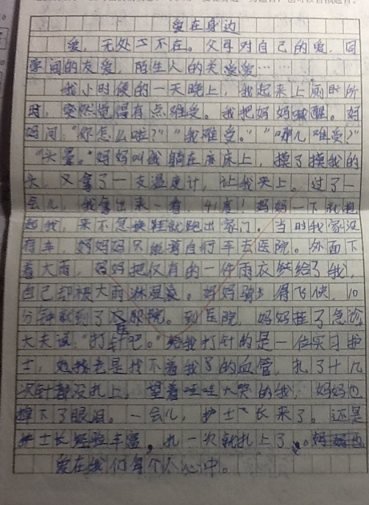 爱在身边
爱，无处不在。父母对自己的爱，同
学间的友爱，陌生人的关爱……！
我小时候的一天晚上，我起来上厕所
时，突然觉得有点难受。我把妈妈喊醒。妈
妈问“你怎么啦？”“我难受。”“哪儿难受？”
“头晕。”妈妈叫我躺在床上，摸了摸我的
头，又拿了一支温度计，让我夹上。过了一
会儿，我拿出来一看，41度！妈妈一下就
起我，来不急换鞋就跑出家门。当时我家没
有车，妈妈只能着自行车去医院。外面下
着大雨，妈妈把仅有的一件雨衣给了我，
自己却被大雨淋湿衰。妈妈骑得飞快，10
分钟就到了医院。到医院，妈妈挂了急诊
大夫说“打针吧。”给我打针的是一位实习护
士，她老是找不着我的血管，扎了十几
次针都没扎上。望着哇哇大哭的我，妈妈也
掉下了眼泪。一会儿，护士长来了。还是
护士长经验丰富，扎一次就扎上了。
爱在我们每个人心中。